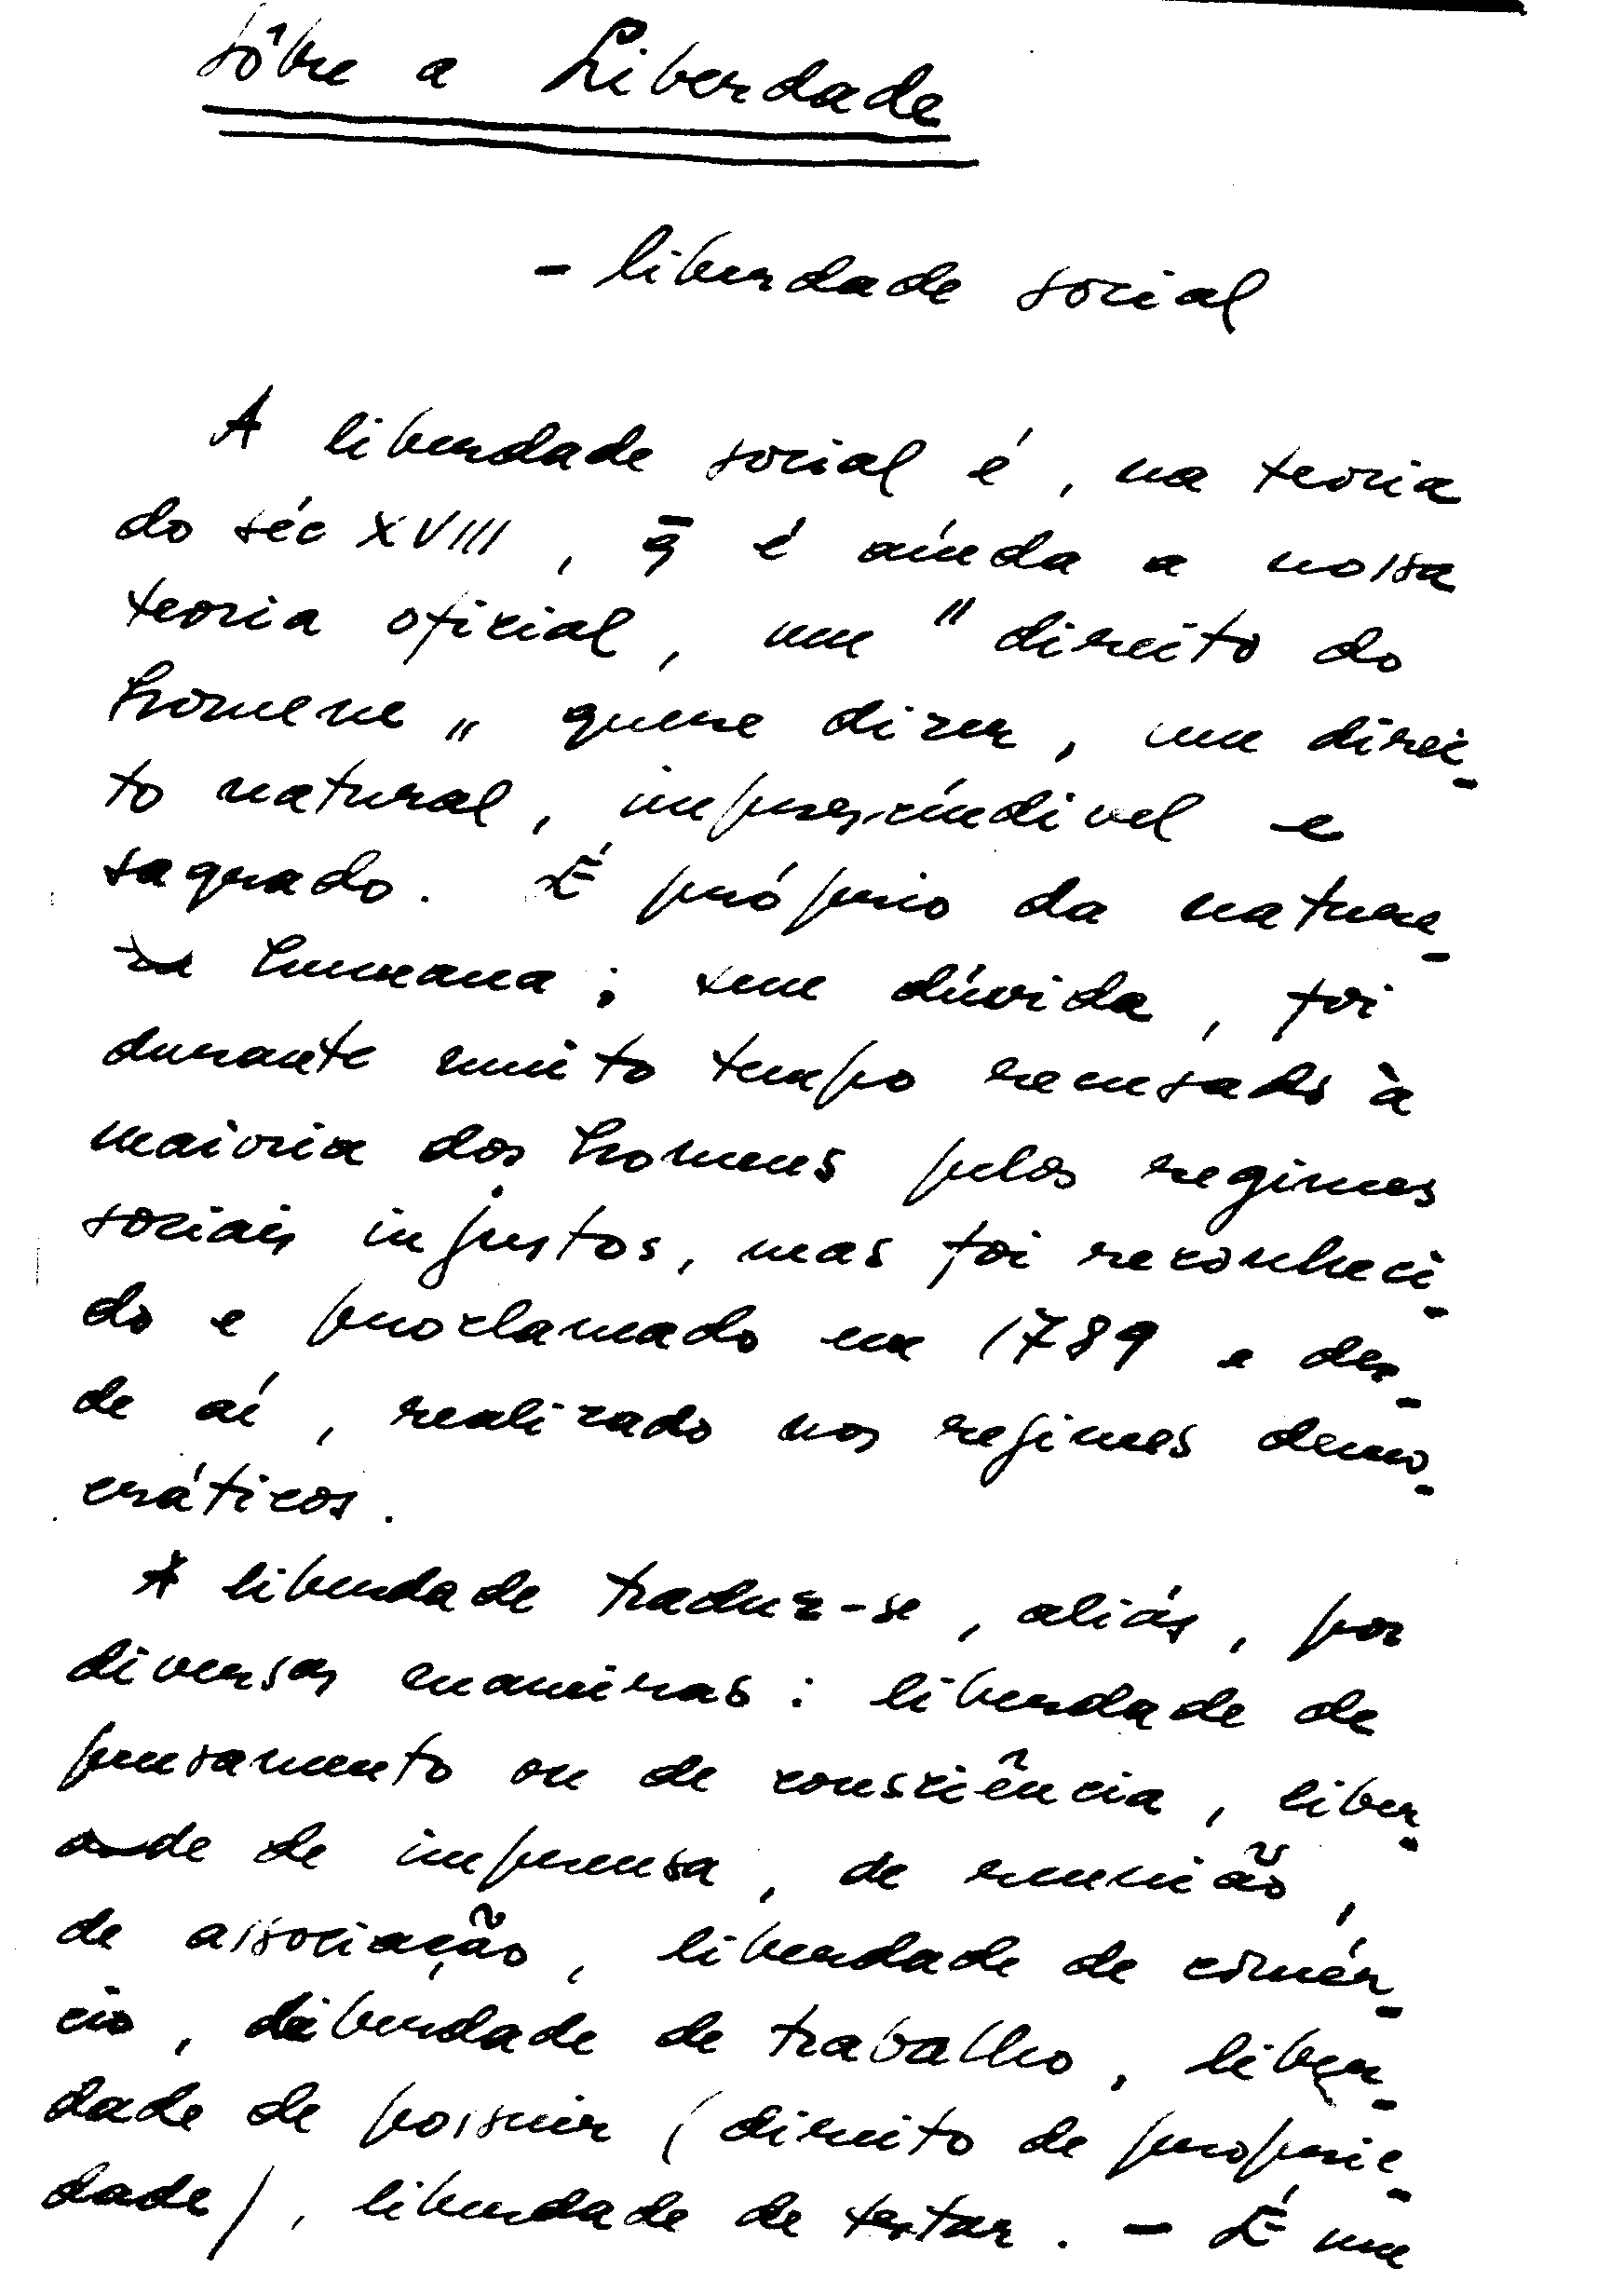 Sôbre a Liberdade
- liberdade social
A liberdade social é, na teoria
do séc XVIII, q̄ é ainda a nossa
teoria oficial, um "direito do
homem" quere dizer, um direi-
to natural, imprescindivel e
sagrado. É próprio da nature-
za humana; sem dúvida, foi
durante muito tempo recusado à
maioria dos homens pelos regimes
sociais injustos, mas foi reconheci-
do e proclamado em 1789 e des-
de aí, realizado nos regimes demo-
cráticos.
A liberdade traduz-se, aliás, por
diversas maneiras: liberdade de
pensamento ou de consciência, liber-
dade de imprensa, de reunião,
de associação, liberdade de comér-
cio, liberdade de trabalho, liber-
dade de possuir (direito de proprie-
dade), liberdade de testar. - É um